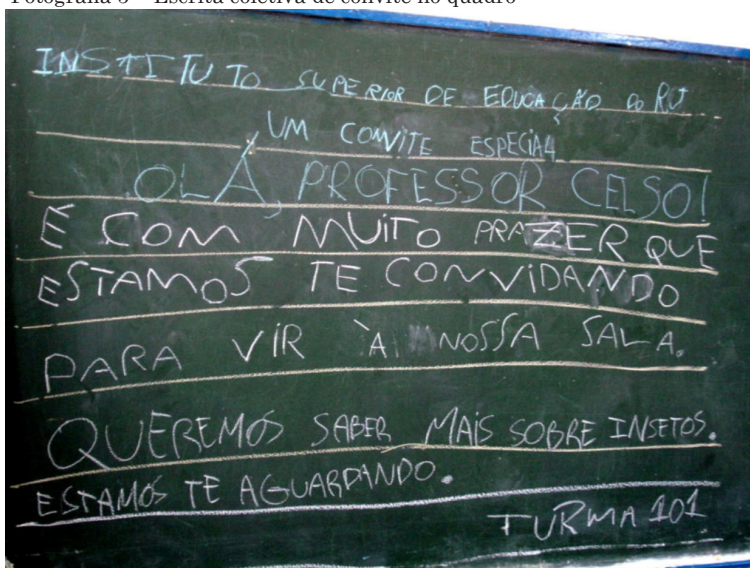 INSTITUTO SUPERIOR DE EDUCAÇÃO DO RJ
UM CONVITE ESPECIAL
OLÁ, PROFESSOR CELSO!
É COM MUITO PRAZER QUE
ESTAMOS TE CONVIDANDO
PARA VIR À NOSSA SALA.
QUEREMOS SABER MAIS SOBRE INSETOS.
ESTAMOS TE AGUARDANDO.
TURMA 101